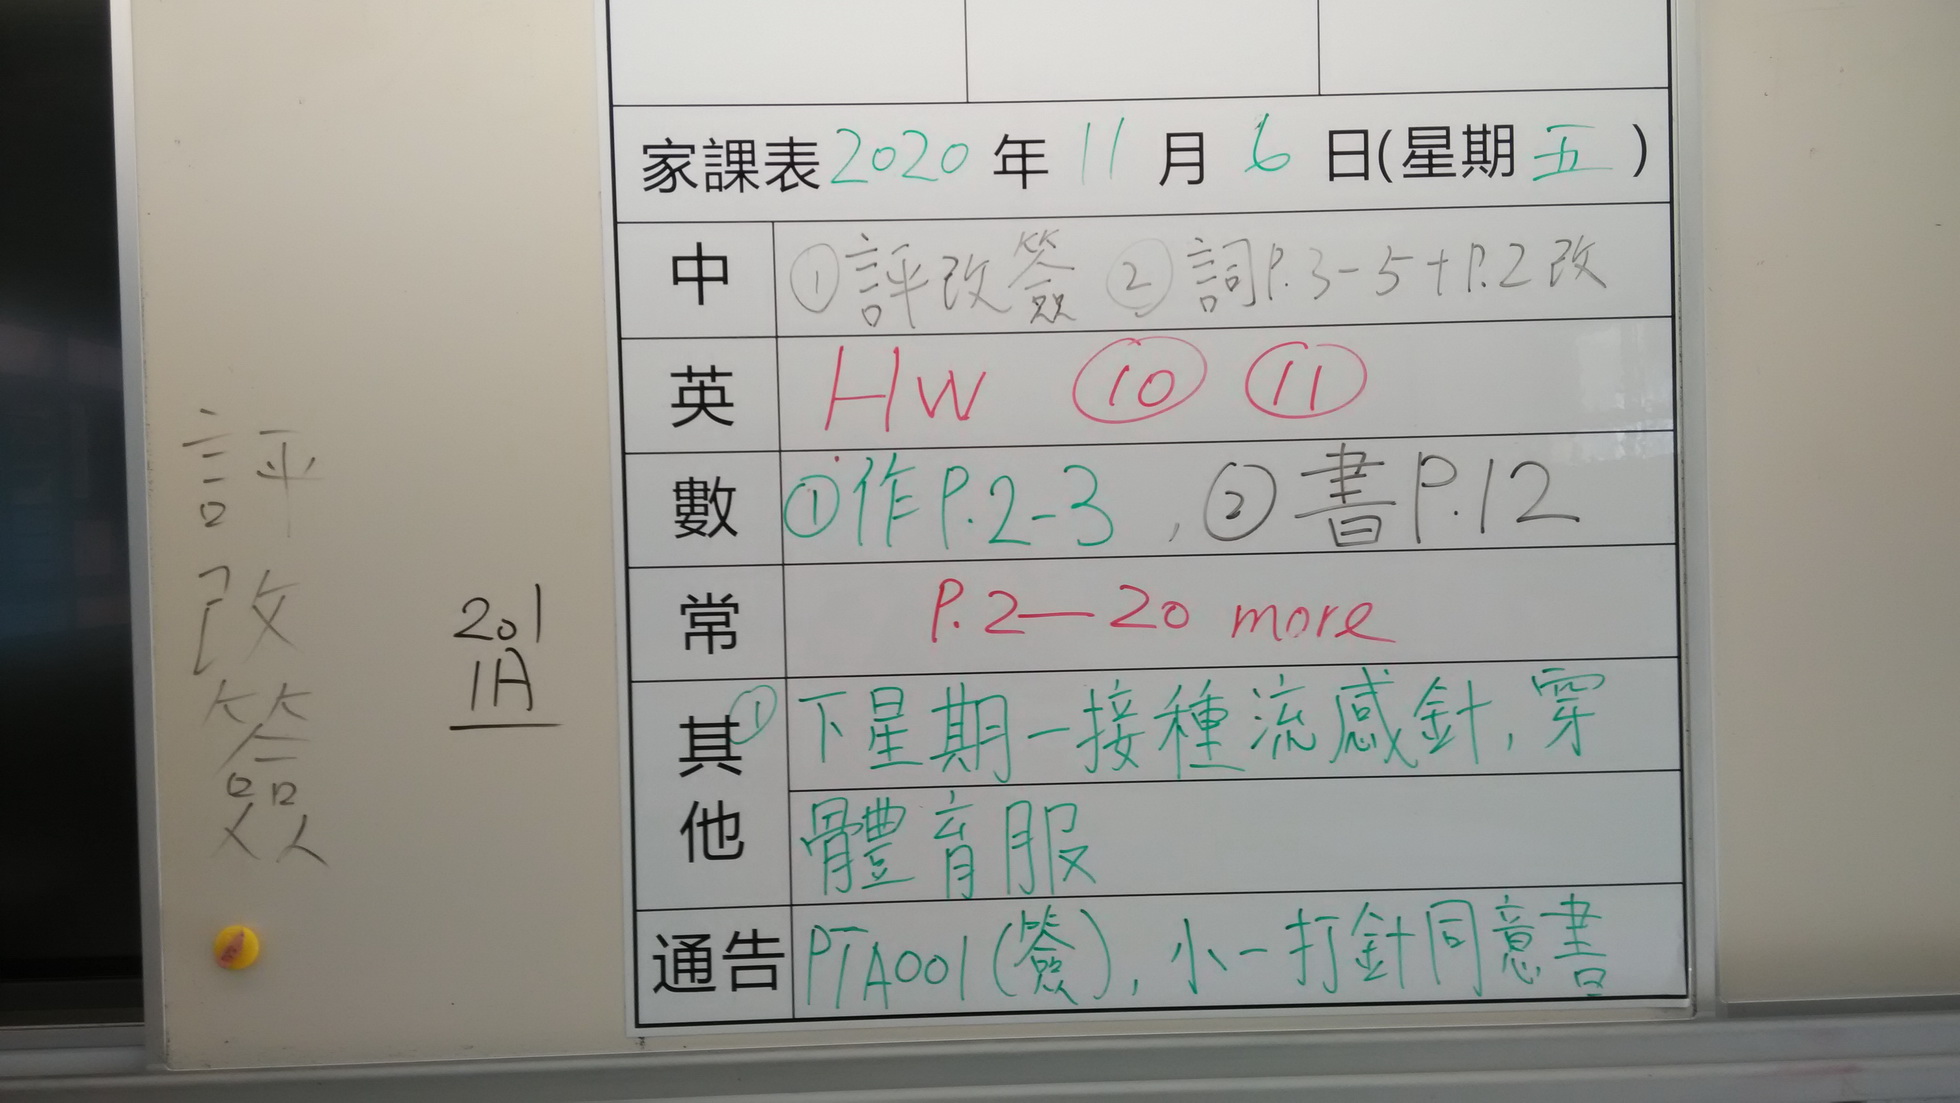 家課表2020年11月6日(星期五)
中 ①評改簽 ②詞P.3-5+P.2改
英 HW ⑩ ⑪
數 ①作P.2-3,②書P.12
常 P.2—20 more
其他 ①下星期一接種流感針,穿
體育服
通告 PTA001(簽),小一打針同意書
評
改
簽
201
1A